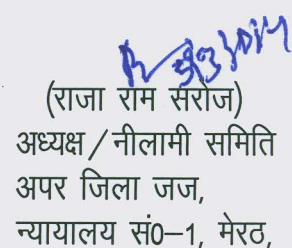 (राजा राम सरोज)
अध्यक्ष/नीलामी समिति
अपर जिला जज,
न्यायालय सं0–1, मेरठ,